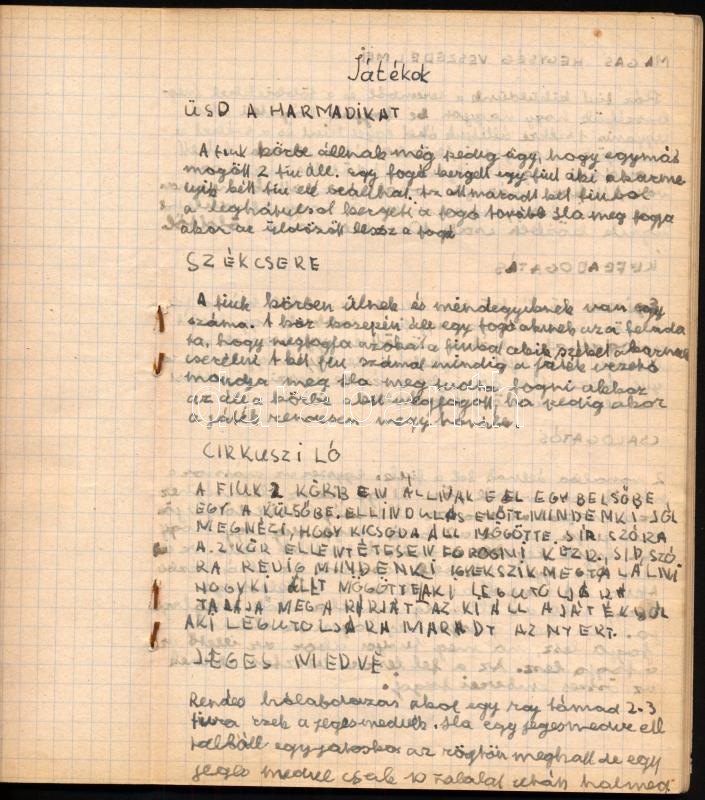 Játékok
ÜSD A HARMADIKAT
A fiuk körbe állnak még pedig úgy, hogy egymás
mogött 2 fiu áll. egy fogó kergeti egy fiut aki akarme
lyik két fiu elé beállhat. Az ott maradt két fiuból
a leghátulsot kergeti a fogó tovább Ha meg fogja
akor az üldözött lessz a fogó
SZÉKCSERE
A fiuk körben ülnek és mindegyiknek van egy
száma. A kör közepén áll egy fogó akinek az a felada
ta, hogy megfogja azokat a fiukat akik széket akarnak
cserélni A két fiu számát mindig a játék vezető
mondja meg Ha meg tudta fogni akkor
az áll a körbe akit megfogott ha pedig akor
a játék rendesen megy
CIRKUSZI LÓ
A FIUK 2 KÖRBEN ÁLLNAK FEL EGY BELSŐBE
EGY A KÜLSŐBE. ELLINDULÁS ELŐTT MINDENKI JÓL
MEGNÉZI, HOGY KICSODA ÁLL MÖGÖTTE. SIP SZÓRA
A 2 KÖR ELLENTÉTESEN FOROGNI KEZD. SIP SZÓ
RA PEDIG MINDENKI IGYEKSZIK MEGTALÁLNI
HOGY KI ÁLLT MÖGÖTTE AKI LEGUTOLJÁRA
TALÁJA MEG A PÁRJÁT AZ KI ÁLL A JÁTÉKBÓL
AKI LEGUTOLJÁRA MARADT AZ NYERT.
JEGES MEDVE
Rendes hólabdazás ahol egy raj támad 2-3
fiura ezek a jegesmedvék. Ha egy jegesmedve ell
talált egy játékost az rögtön meghalt de egy
jeges medve csak 10 találat után hal meg